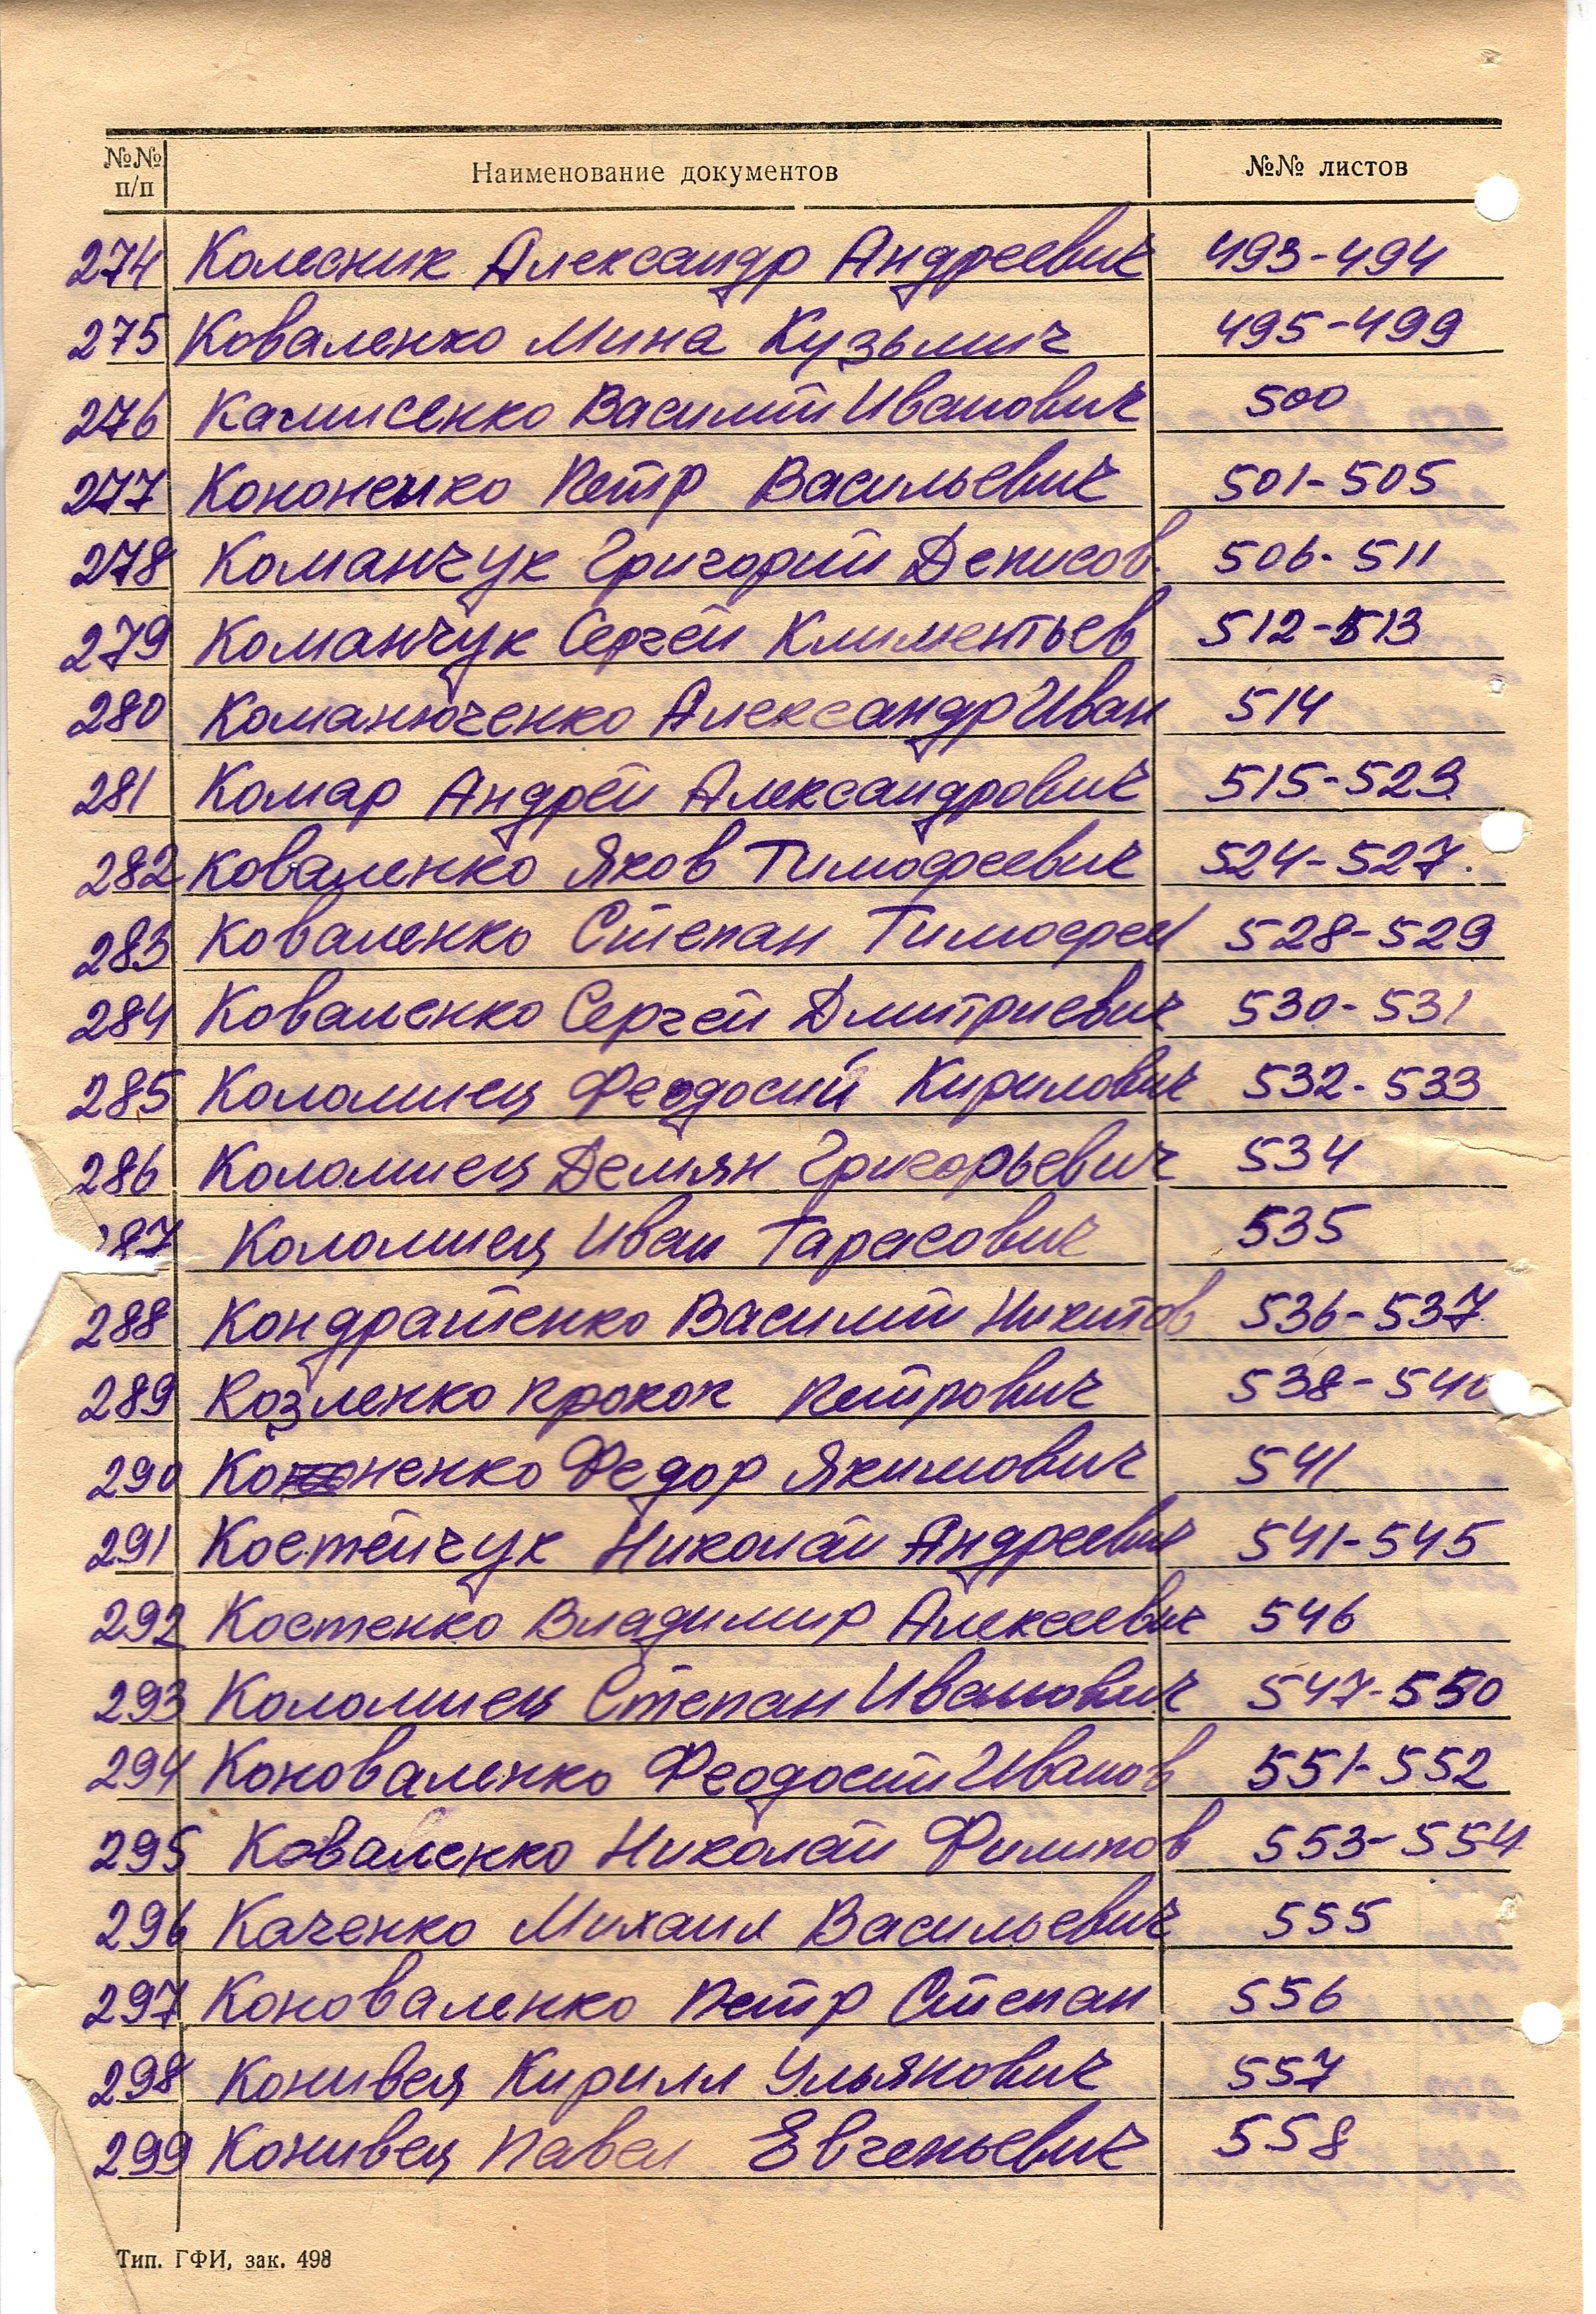 №№ п/п Наименование документов №№ листов
274 Колесник Александр Андреевич 493-494
275 Коваленко Мина Кузьмич 495-499
276 Камисенко Василий Иванович 500
277 Кононенко Петр Васильевич 501-505
278 Команчук Григорий Денисов. 506-511
279 Команчук Сергей Климентьев 512-513
280 Команюченко Александр Иван 514
281 Комар Андрей Александрович 515-523
282 Коваленко Яков Тимофеевич 524-527.
283 Коваленко Степан Тимофеев 528-529
284 Коваленко Сергей Дмитриевич 530-531
285 Коломиец Феодосий Кирилович 532-533
286 Коломиец Демян Григорьевич 534
287 Коломиец Иван Тарасович 535
288 Кондратенко Василий Никитов 536-537
289 Козленко Прокоп Петрович 538-540
290 Кононенко Федор Якимович 541
291 Костейчук Николай Андреевич 541-545
292 Костенко Владимир Алексеевич 546
293 Коломиец Степан Иванович 547-550
294 Коноваленко Феодосий Иванов 551-552
295 Коваленко Николай Филипов 553-554
296 Каченко Михаил Васильевич 555
297 Коноваленко Петр Степан 556
298 Конивец Кирилл Ульянович 557
299 Конивец Павел Евгеньевич 558
Тип. ГФИ, зак. 498